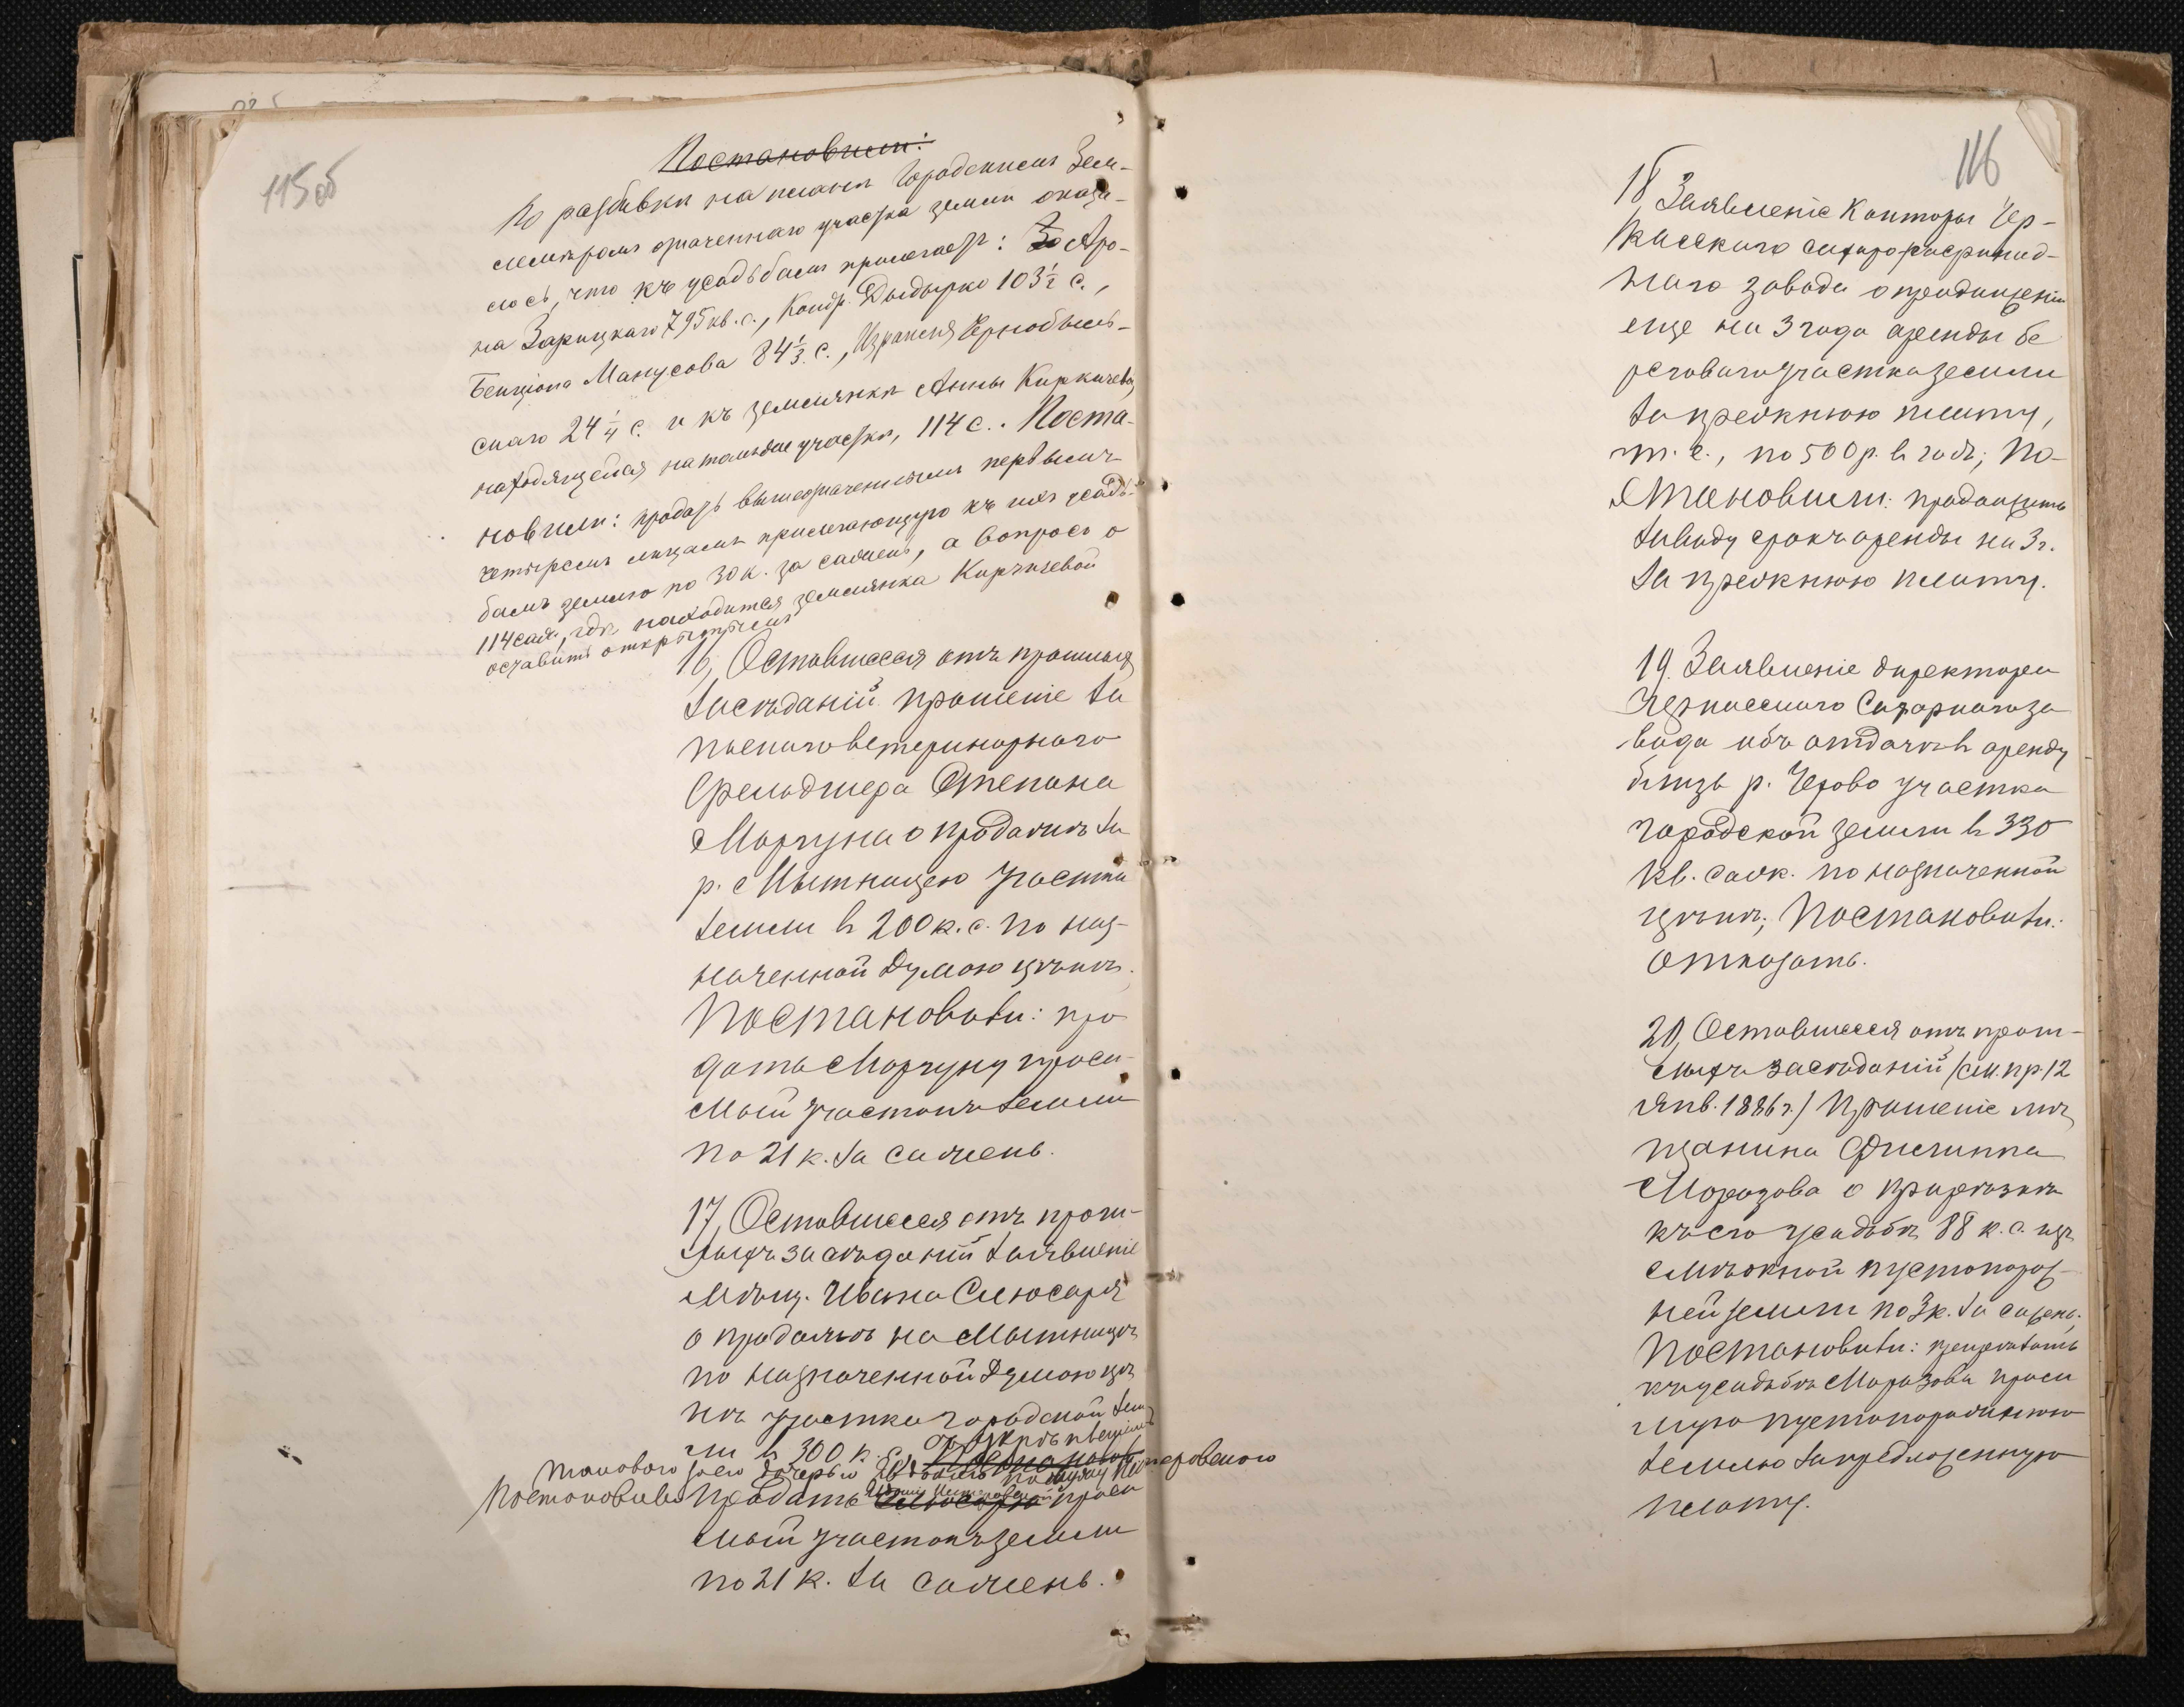 115 об
Постановили:
По разбивкѣ на планѣ Городскимъ Зем-
лемѣромъ означеннаго участка земли оказа-
лось, что къ усадьбамъ прилегаетъ: Аро-
на Зарицкаго 795 кв. с., Кондр. Дыдырко 103½ с.,
Бенціона Манусова 84⅓ с., Израиля Чернобыль-
скаго 24¼ с. и къ землянкѣ Анны Киркичевой,
находящейся на томъ же участкѣ, 114 с. Поста-
новили: продать вышеозначеннымъ первымъ
четыремъ лицамъ прилегающую къ ихъ усадь-
бамъ землю по 30 к. за сажень, а вопросъ о
114 саж., гдѣ находится землянка Киркичевой
оставить открытымъ
16, Оставшееся отъ прошлыхъ
засѣданій прошеніе за
паснаго ветеринарнаго
фельдшера Степана
Моргуна о продажѣ за
р. Мытницею участка
земли в 200 к. с. по наз-
наченной Думою цѣнѣ.
Постановили: про
дать Моргуну проси-
мый участокъ земли
по 21 к. за сажень.
17, Оставшееся отъ прош-
лыхъ засѣданій заявленіе
мѣщ. Ивана Слюсаря
о продажѣ на Мытницѣ
по назначенной Думою цѣ
нѣ участка городской зем
ли в 300 к. с.
таковаго его дочерью
Постановили Продать Слюсарю проси
мый участокъ земли
по 21 к. за сажень.
116
18, Заявленіе Конторы Чер-
касскаго сахарорафинад-
наго завода о продолженіи
еще на 3 года аренды бе
реговаго участка земли
за прежнюю плату,
т. е., по 500 р. в годъ; По-
становили: продолжить
заводу срокъ аренды на 3 г.
за прежнюю плату.
19. Заявленіе директора
Черкасскаго Сахарнаго за
вода объ отдачѣ в аренду
близь р. участка
городской земли в 330
кв. саж. по назначенной
цѣнѣ; Постановили:
отказать.
20, Оставшееся отъ прош-
лыхъ засѣданій /см. пр. 12
Янв. 1886 г./ Прошеніе мѣ
щанина Филиппа
Морозова о прирѣзкѣ
къ его усадьбѣ 88 к. с. изъ
смежной пустопорож-
ней земли по 3 к. за сажень;
Постановили: прирѣзать
къ усадьбѣ Морозова проси
мую пустопорожнюю
землю за предложенную
плату.